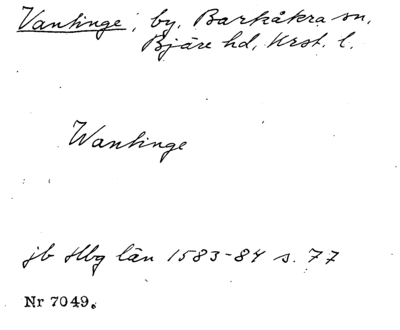 Vantinge, by, Barkåkra sn,
Bjäre hd, Krst. l.
Wantinge
jb Hbg län 1583-84 s. 77
Nr 7049.